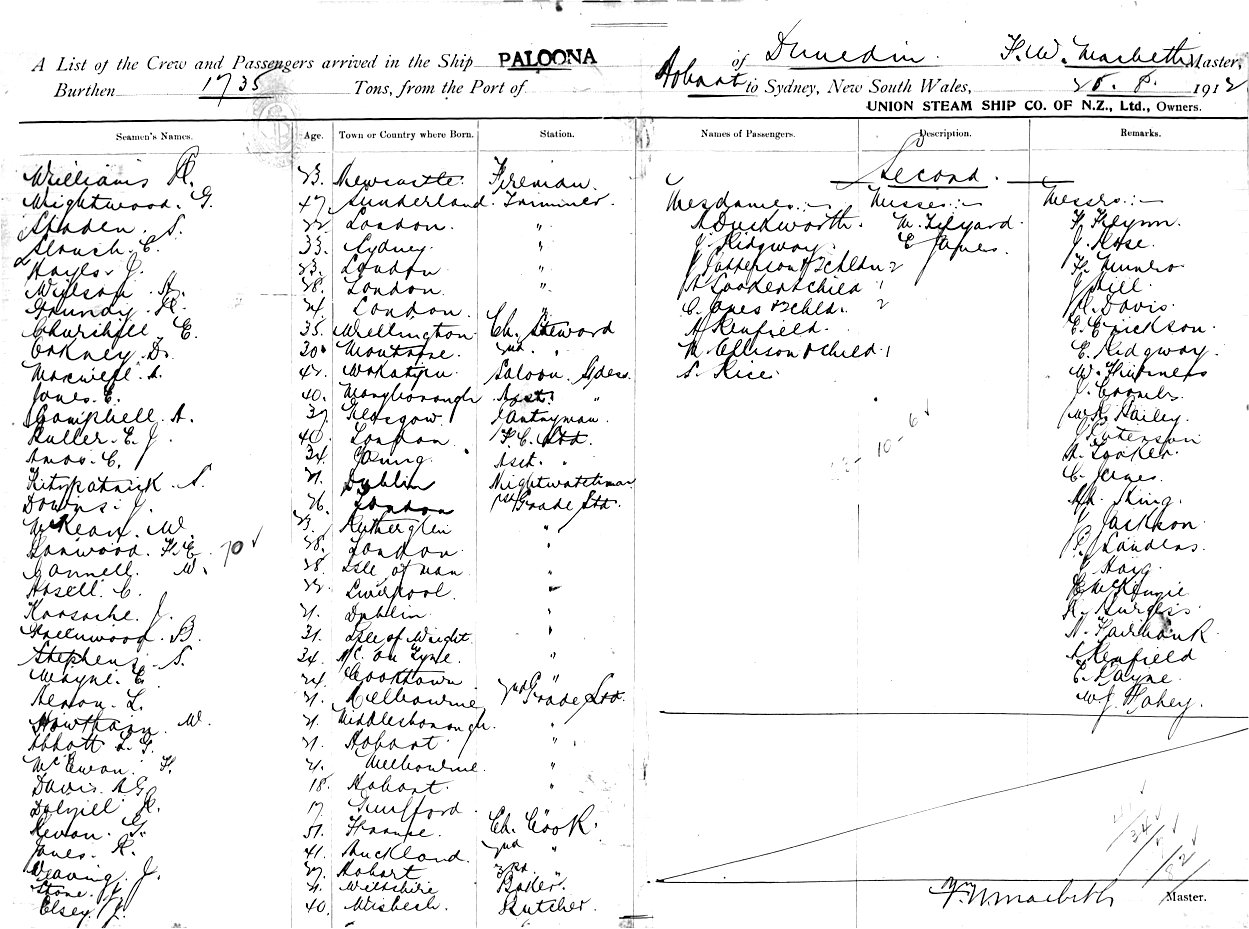 A List of the Crew and Passengers arrived in the Ship PALOONA of Dunedin. F. W. Macbeth Master,
Burthen 1735 Tons, from the Port of Hobart to Sydney, New South Wales, 8. 1912
UNION STEAM SHIP CO. OF N.Z., Ltd., Owners.
Seamen's Names. Age. Town or Country where Born. Station.
Williams H. 23. Newcastle. Fireman.
Wrightwood. G. 47. Sunderland. Trimmer.
S. 22. London. "
C. 33. Sydney. "
Hayles. J. 23. London. "
Wilson 28. London. "
Grundy. H. 24. London. "
Churchill. E. 35. Wellington Ch. Steward
Oakney. D. 30. Montrose. 2nd. "
Maxwell. A. 42. Wakatipu Saloon.
Jones. E. 40. Maryborough Asst. "
Campbell. A. 37. Glasgow. Pantryman.
Buller. E. J. 40. London. F. C. Std.
Amos. C. 34. Young. Asst. "
Fitzpatrick. S. 21. Dublin Nightwatchman
Downs. J. 26. London 1st Grade Std.
McKean. W. 23. Rutherglen "
F. E. 28. London. "
Gannell. W. 28. Isle of Man. "
C. 22. Liverpool. "
J. 21. Dublin "
Greenwood. B. 31. Isle of Wright. "
Stephens. S. 34. N/C. on Tyne. "
Wayne. E. 24. Cooktown "
L. 21. Melbourne. 2nd Grade Std.
Hawthorn W. 21. Middlesborough. "
Abbott L. G. 21. Hobart "
McEwan. F. 21. Melbourne. "
Davis. A G 18. Hobart. "
Dalziell H. 17 Guilford.
G. 51. France. Ch. Cook.
Jones. R. 41. Auckland. 2nd "
Weaving. J. 27. Hobart 3rd "
Stone. 21. Wiltshire Baker.
Elsey 40. Wisbech. Butcher.
70
Names of Passengers. Description. Remarks.
Second.
Mesdames:- Misses:- Messrs:-
A Duckworth. M. Tilyard. F. Flynn.
J. Ridgway. E. James. J. Rose.
J Patterson & 2 chldn 2 F. Munro.
& child 1 J Hill.
C. & 2 chld. 2 H. Davis.
A Renfield. E. Erickson.
M. Ellison & child 1 E. Ridgway.
S. Rice. W. Thurness
J. Coombs
W. Hailey.
J Paterson
A. Looker.
C.
King.
J Jackson.
P. Landers.
J Haig.
McKenzie
R. Burgess.
N. Fairbank
A Renfield
E. Payne.
W J. Fahey.
10 - 6
34
82
F. W. Macbeth Master.